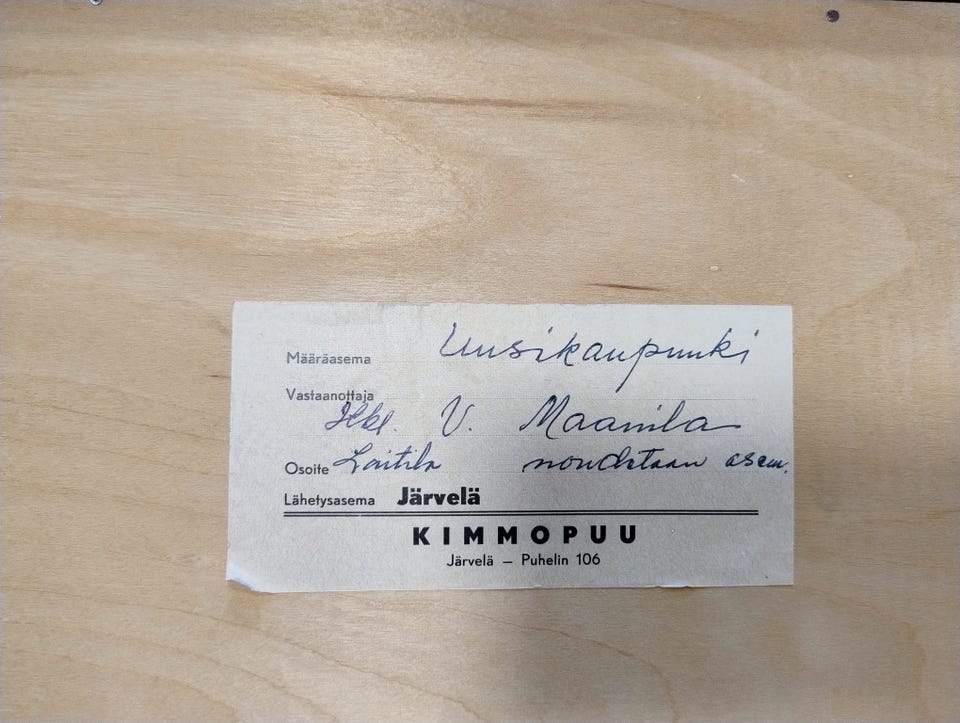 Määräasema Uusikaupunki
Vastaanottaja
Hkl. V. Maanila
Osoite Laitila noudetaan asem.
Lähetysasema Järvelä
KIMMOPUU
Järvelä – Puhelin 106